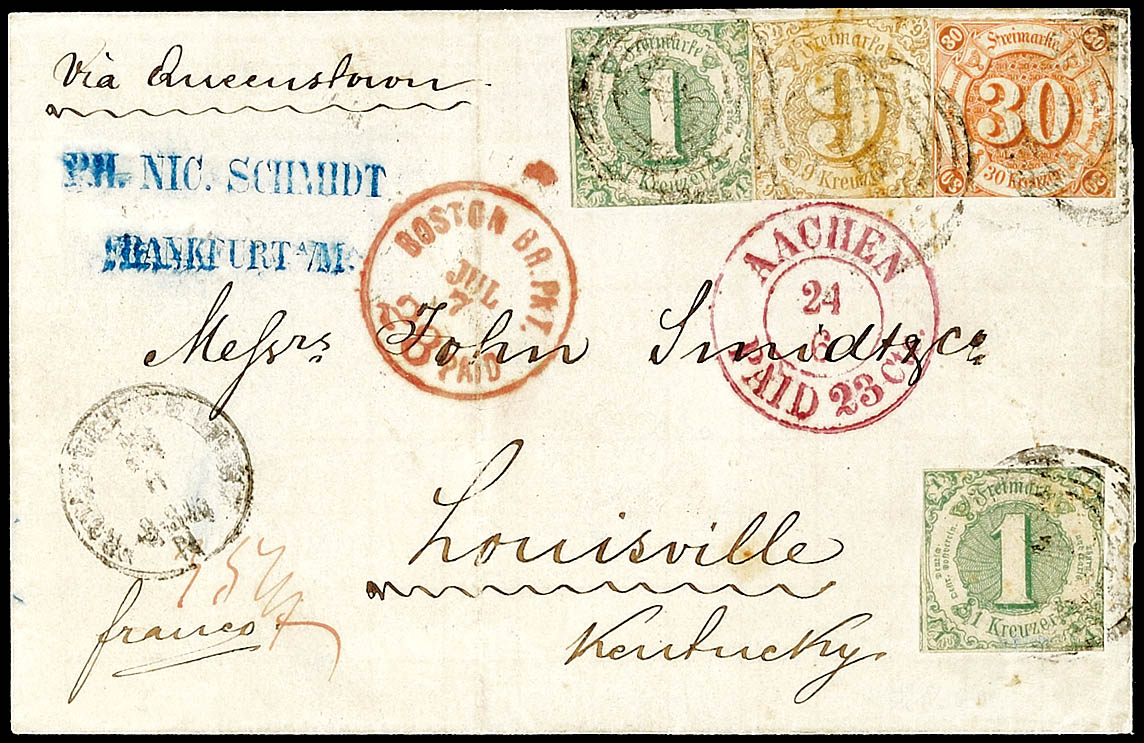 Via Queenstown
PH. NIC. SCHMIDT
FRANKFURT A/M.
1
Freimarke
1 Kreuzer
9
Freimarke
9 Kreuzer
30 30
Freimarke
30
30 Kreuzer
30 30
BOSTON BR. PKT.
JUL
7
23
PAID
AACHEN
24
6
PAID 23 Cts.
Messrs John Smidt & Co
Louisville
Kentucky.
franco
Freimarke
1
1 Kreuzer